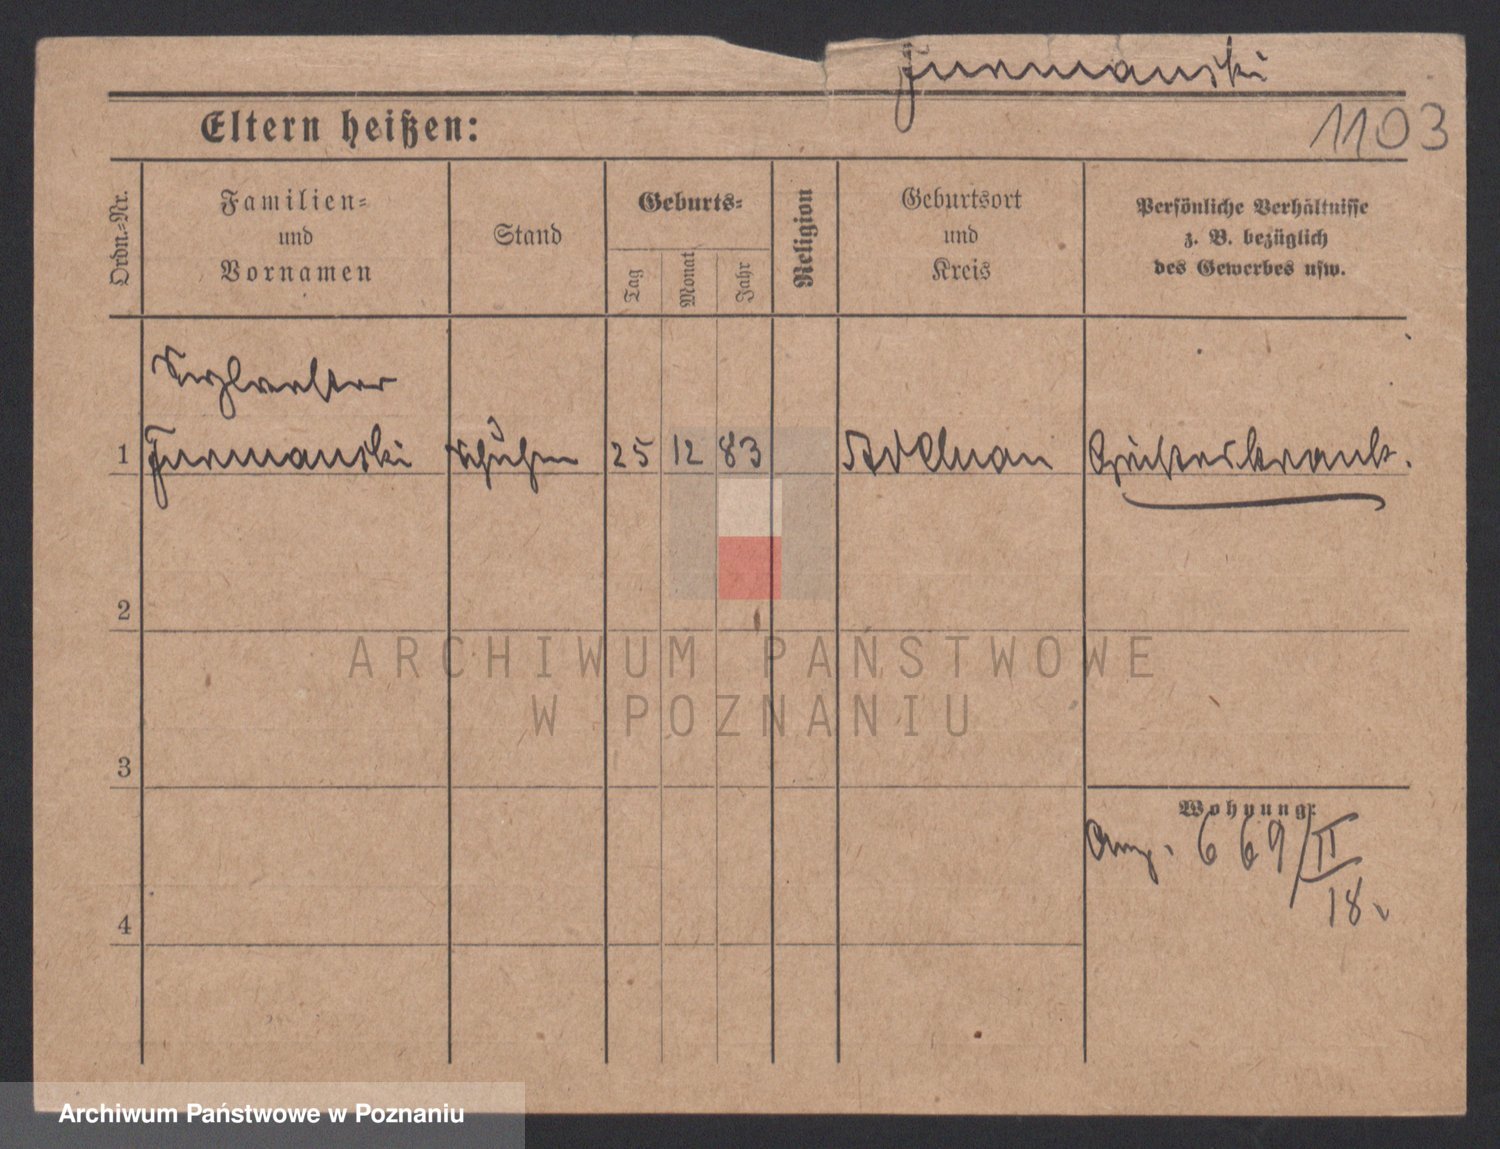 Furmanski
1103
Eltern heißen:
Ordn.=Nr.
Familien=
und
Vornamen
Stand
Geburts=
Tag
Monat
Jahr
Religion
Geburtsort
und
Kreis
Persönliche Verhältnisse
z. B. bezüglich
des Gewerbes usw.
Sylvester
1 Furmanski 25 12 83 Geisteskrank.
2
3
Wohnung:
669/II
18.
4
ARCHIWUM PAŃSTWOWE
W POZNANIU
Archiwum Państwowe w Poznaniu